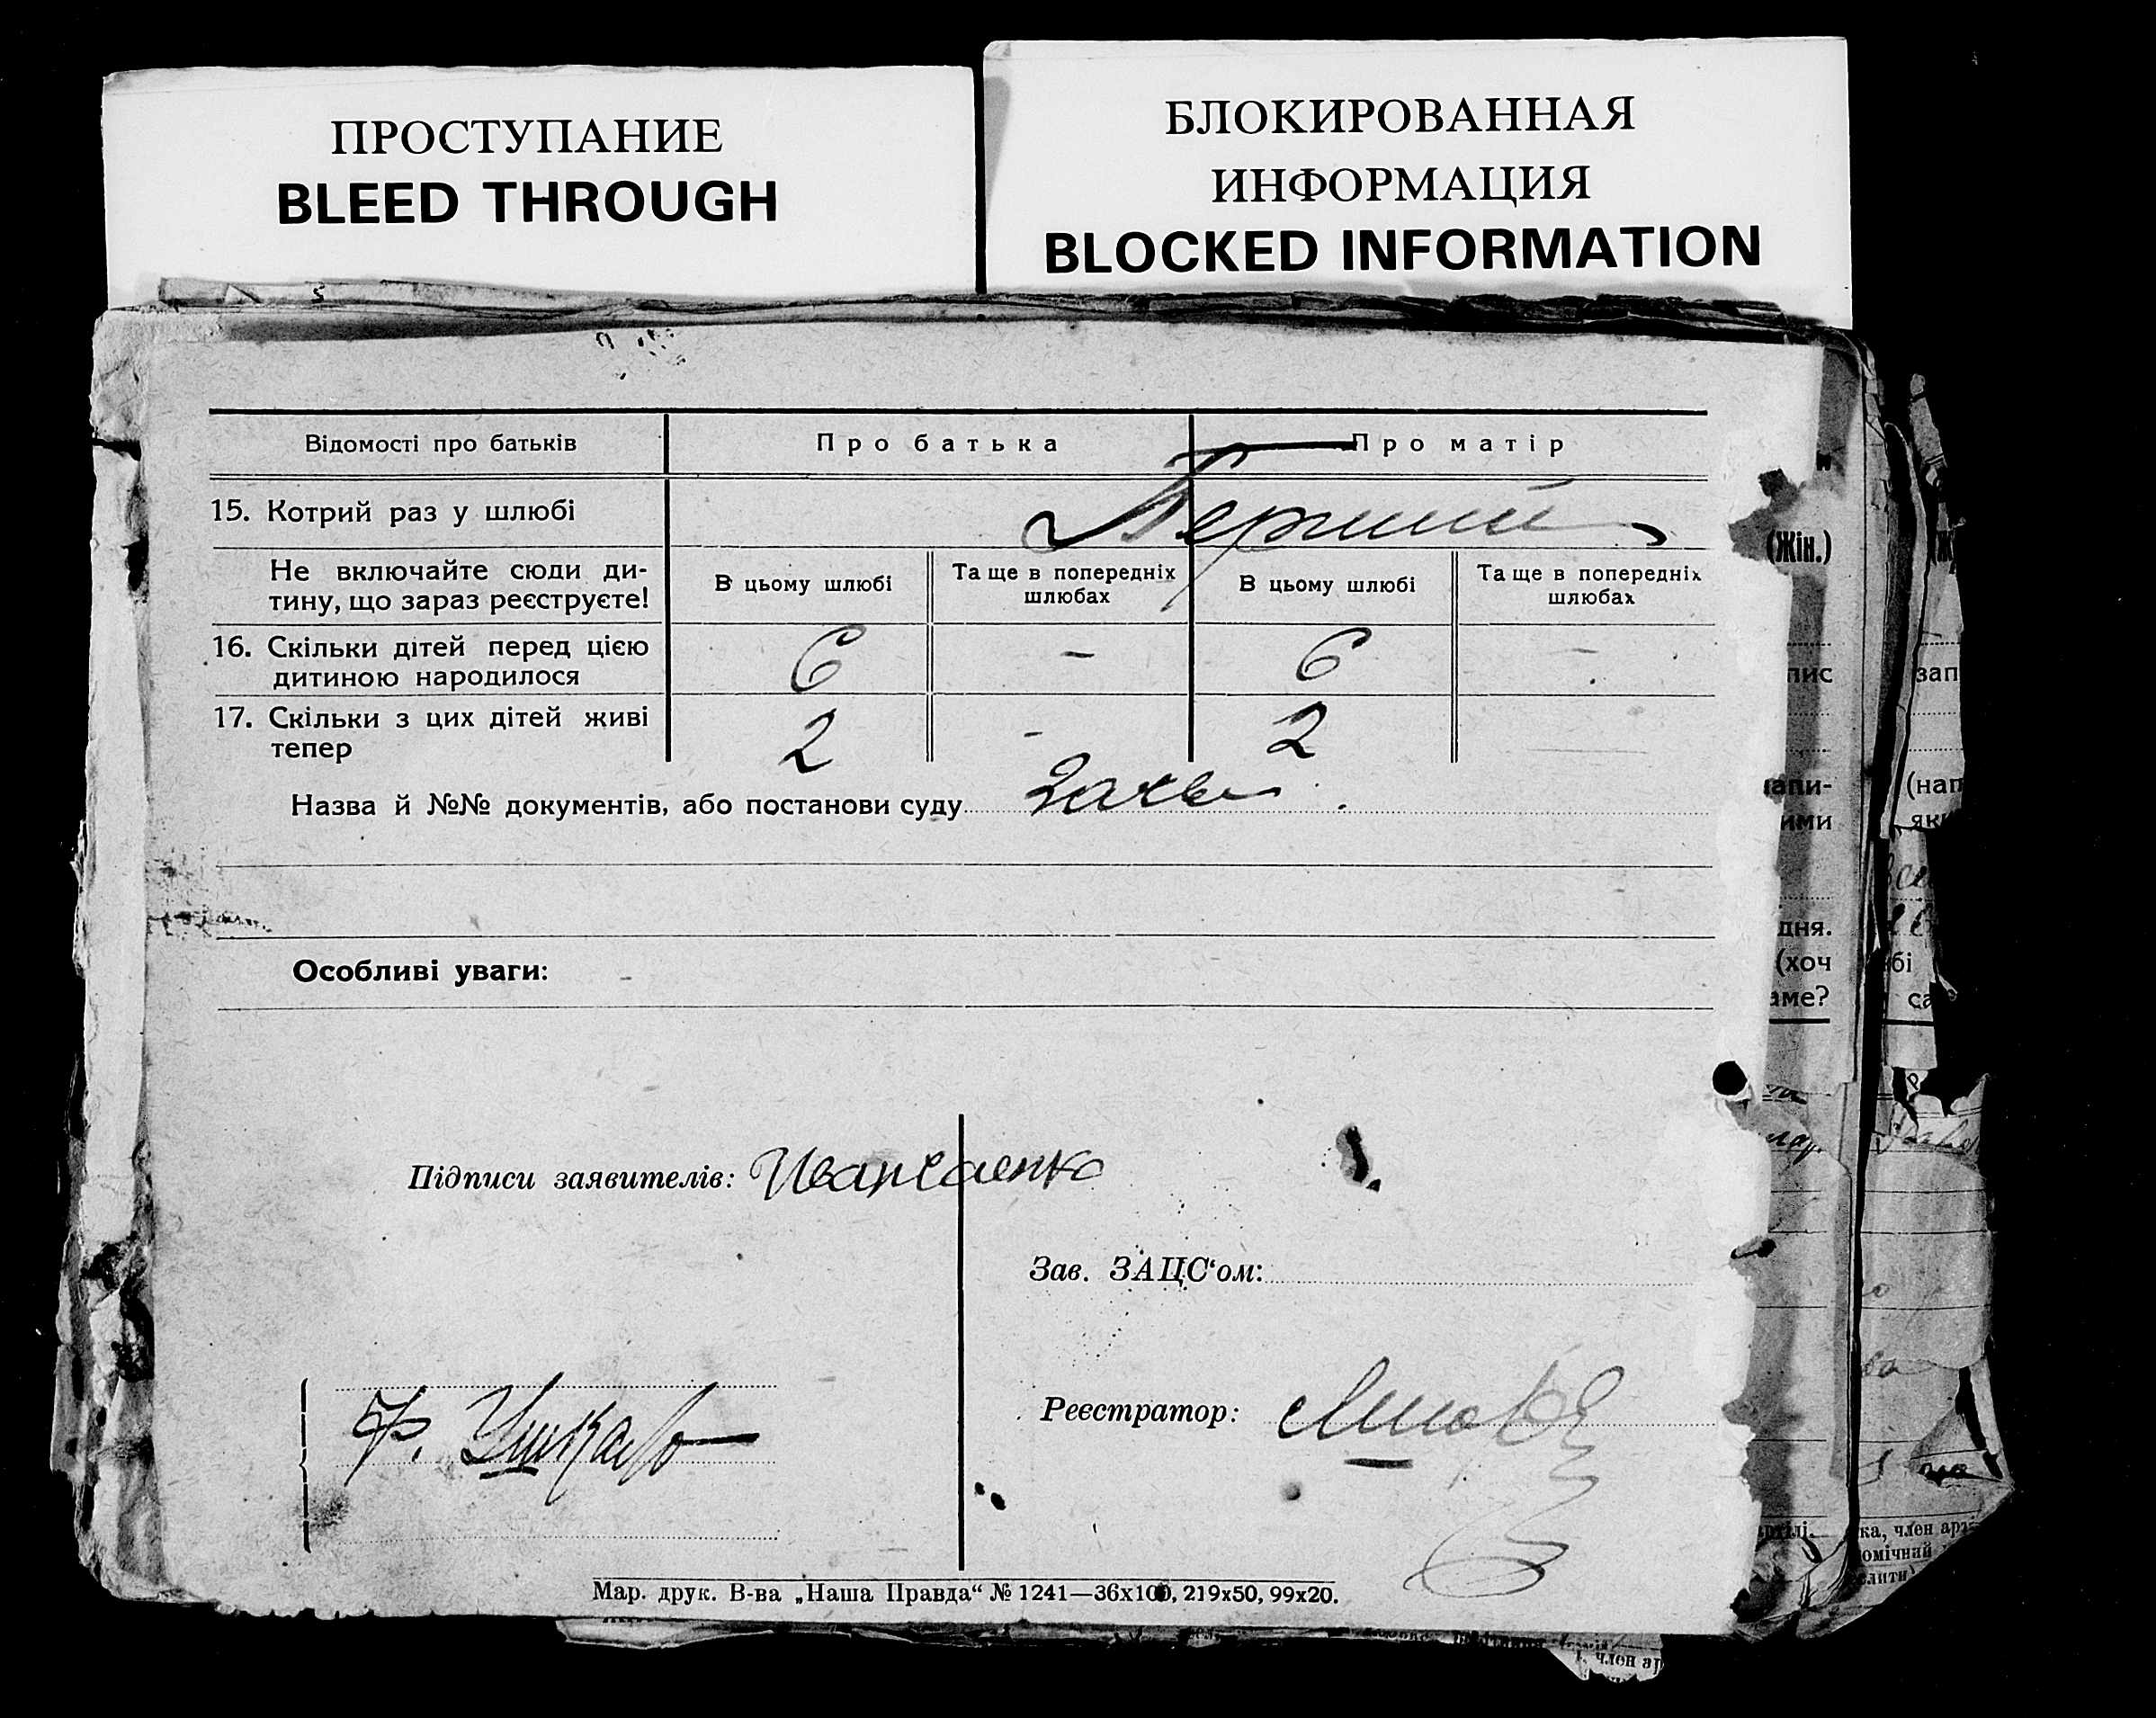 ПРОСТУПАНИЕ
BLEED THROUGH
БЛОКИРОВАННАЯ
ИНФОРМАЦИЯ
BLOCKED INFORMATION
Відомості про батьків Про батька Про матір
15. Котрий раз у шлюбі Перший
Не включайте сюди ди-
тину, що зараз реєструєте!
В цьому шлюбі
Та ще в попередніх
шлюбах
В цьому шлюбі
Та ще в попередніх
шлюбах
16. Скільки дітей перед цією
дитиною народилося
6 - 6 -
17. Скільки з цих дітей живі
тепер
2 - 2
Назва й №№ документів, або постанови суду
Особливі уваги: -
Підписи заявителів:
Зав. ЗАЦС‘ом:
Ф.
Реєстратор:
Мар. друк. В-ва „Наша Правда“ № 1241—36х100, 219х50, 99х20.
(Жін.)
пис
запи-
ими
дня.
(хоч
аме?
зап
(нап
як
бі
са
ка, член арт
омічний